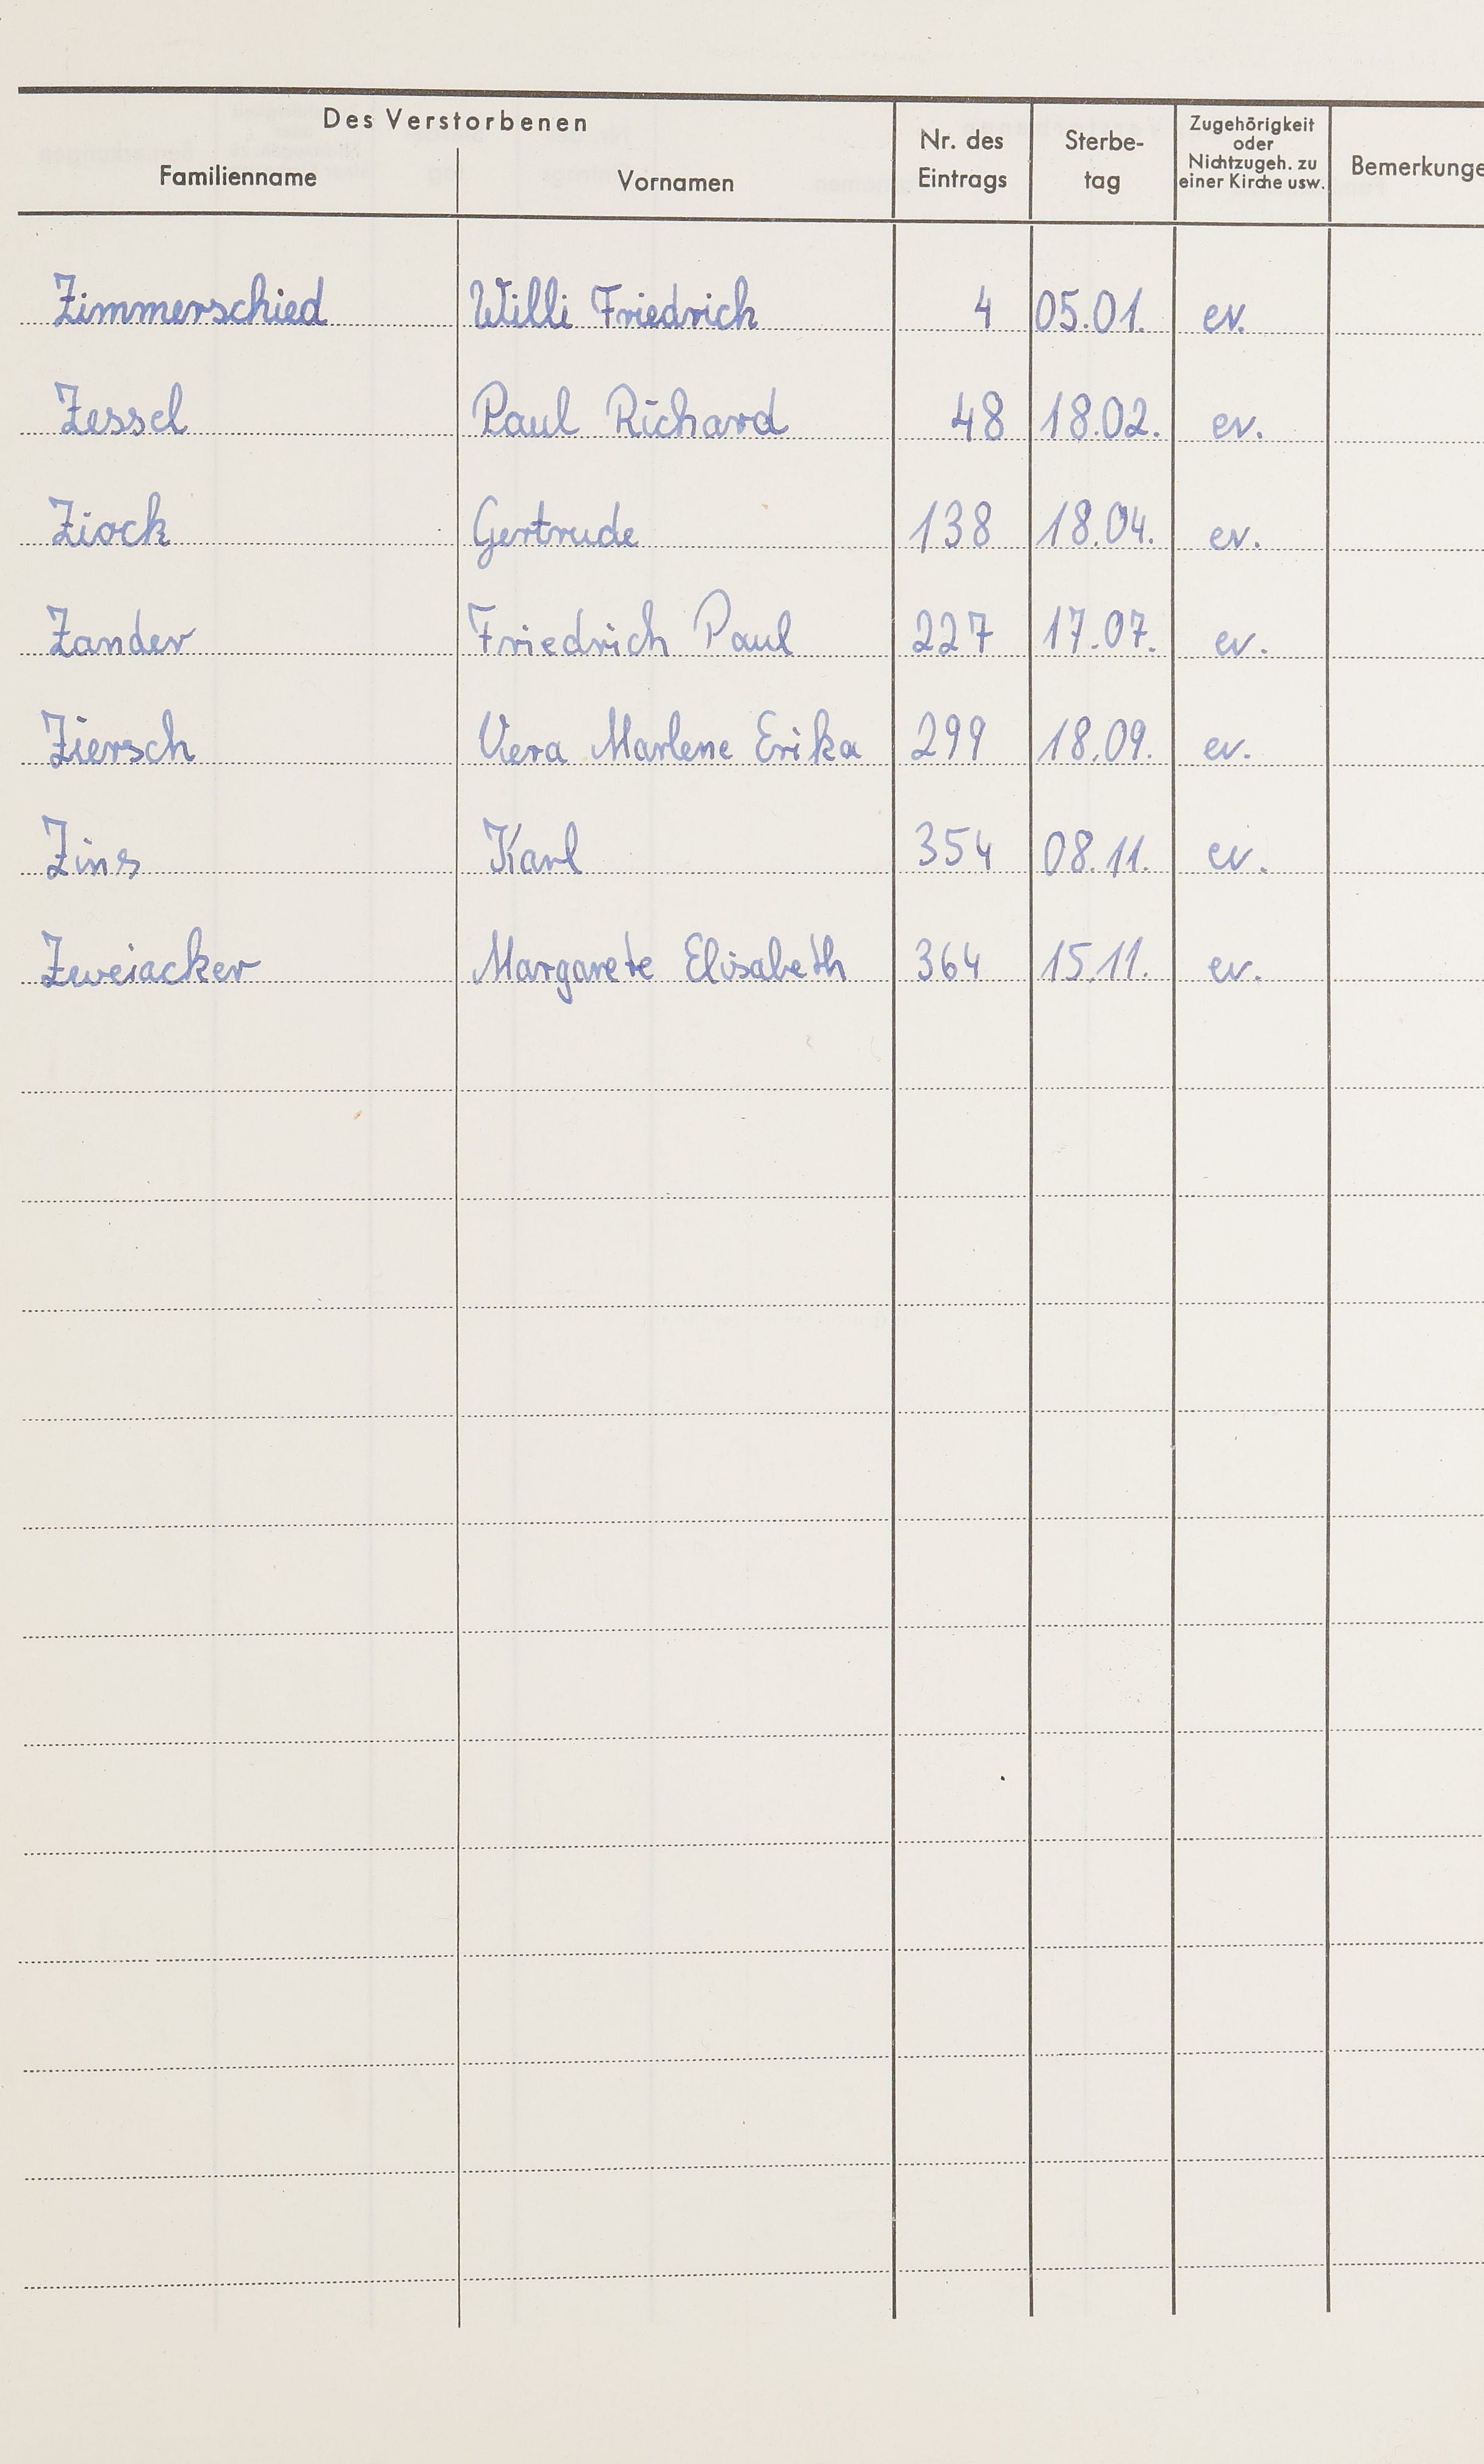 Des Verstorbenen
Familienname Vornamen Nr. des Eintrags Sterbe-tag Zugehörigkeit oder Nichtzugeh. zu einer Kirche usw. Bemerkunge
Zimmerschied Willi Friedrich 4 05.01. ev.
Zessel Paul Richard 48 18.02. ev.
Ziock Gertrude 138 18.04. ev.
Zander Friedrich Paul 227 17.07. ev.
Ziersch Vera Marlene Erika 299 18.09. ev.
Zins Karl 354 08.11. ev.
Zweiacker Margarete Elisabeth 364 15.11. ev.